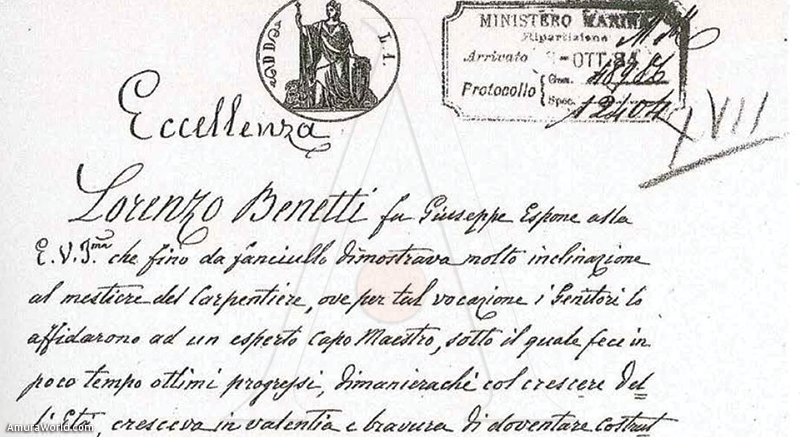 DD L. 1.
MINISTERO MARINA
Ripartizione
Arrivato - OTT. 84
Protocollo { Gen.
Spec. 12404
XVII
Eccellenza
Lorenzo Benetti fu Giuseppe Espone alla
E. V. Ima che fino da fanciullo dimostrava molto inclinazione
al mestiere del Carpentiere, ove per tal vocazione i Genitori lo
affidarono ad un esperto Capo Maestro, sotto il quale fece in
poco tempo ottimi progressi, dimanieraché col crescere del=
li Età, cresceva in valentia e bravura di doventare Costrut=
AmuraWorld.com